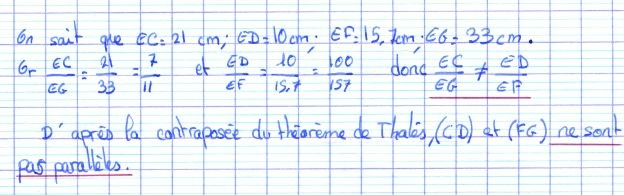 On sait que EC= 21 cm; ED=10cm; EF=15,7cm; EG= 33cm.
Or EC/EG = 21/33 = 7/11 et ED/EF = 10/15,7 = 100/157 donc EC/EG ≠ ED/EF
D'après la contraposée du théorème de Thalès, (CD) et (FG) ne sont
pas parallèles.